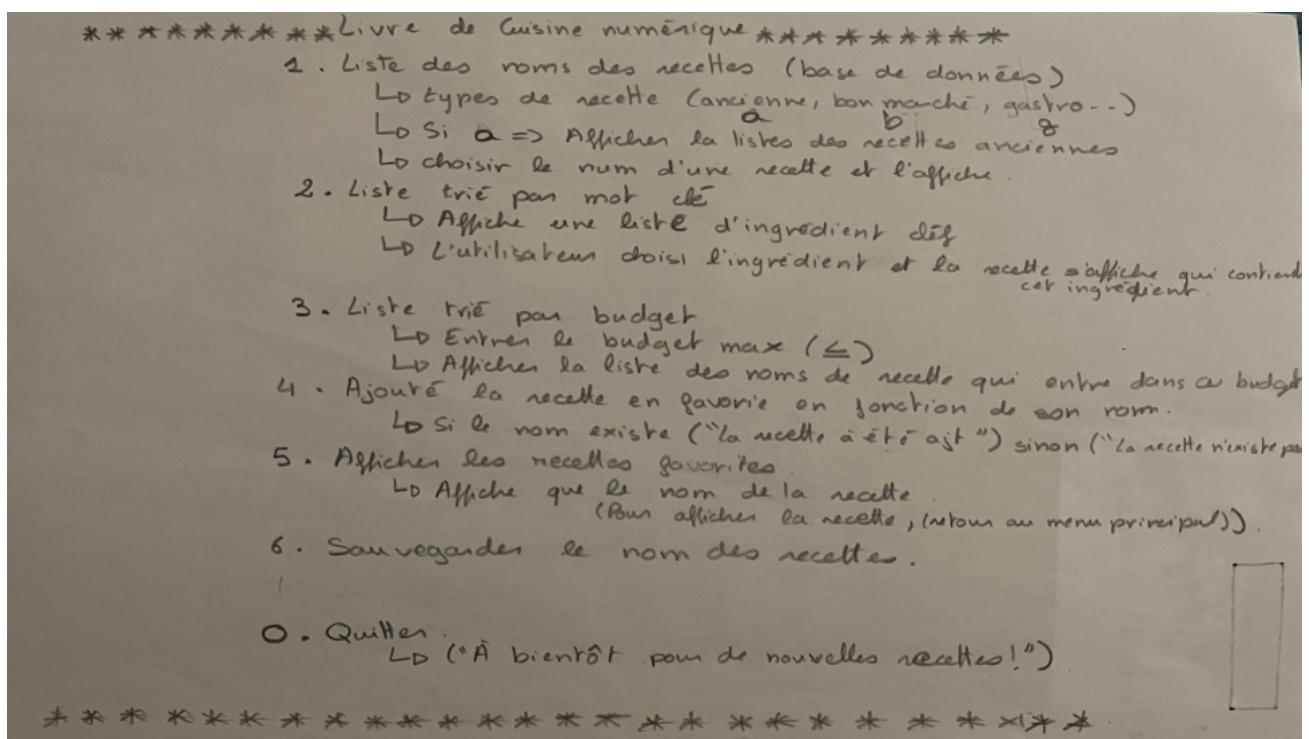 ********* Livre de Cuisine numérique *********
1. Liste des noms des recettes (base de données)
↳ types de recette (ancienne, bon marché, gastro--)
a b g
↳ Si a => Afficher la listes des recettes anciennes
↳ choisir le num d'une recette et l'affiche.
2. Liste trié par mot clé
↳ Affiche une liste d'ingrédient clés
↳ L'utilisateur choisi l'ingrédient et la recette s'affiche qui contient
cet ingrédient.
3. Liste trié par budget
↳ Entrer le budget max (≤)
↳ Afficher la liste des noms de recette qui entre dans ce budget
4. Ajouté la recette en favorie en fonction de son nom.
↳ Si le nom existe ("la recette à été ajt") sinon ("La recette n'existe pas
5. Afficher les recettes favorites.
↳ Affiche que le nom de la recette.
(Pour afficher la recette, (retour au menu principal)).
6. Sauvegarder le nom des recettes.
0. Quitter.
↳ ("À bientôt pour de nouvelles recettes!")
**************************